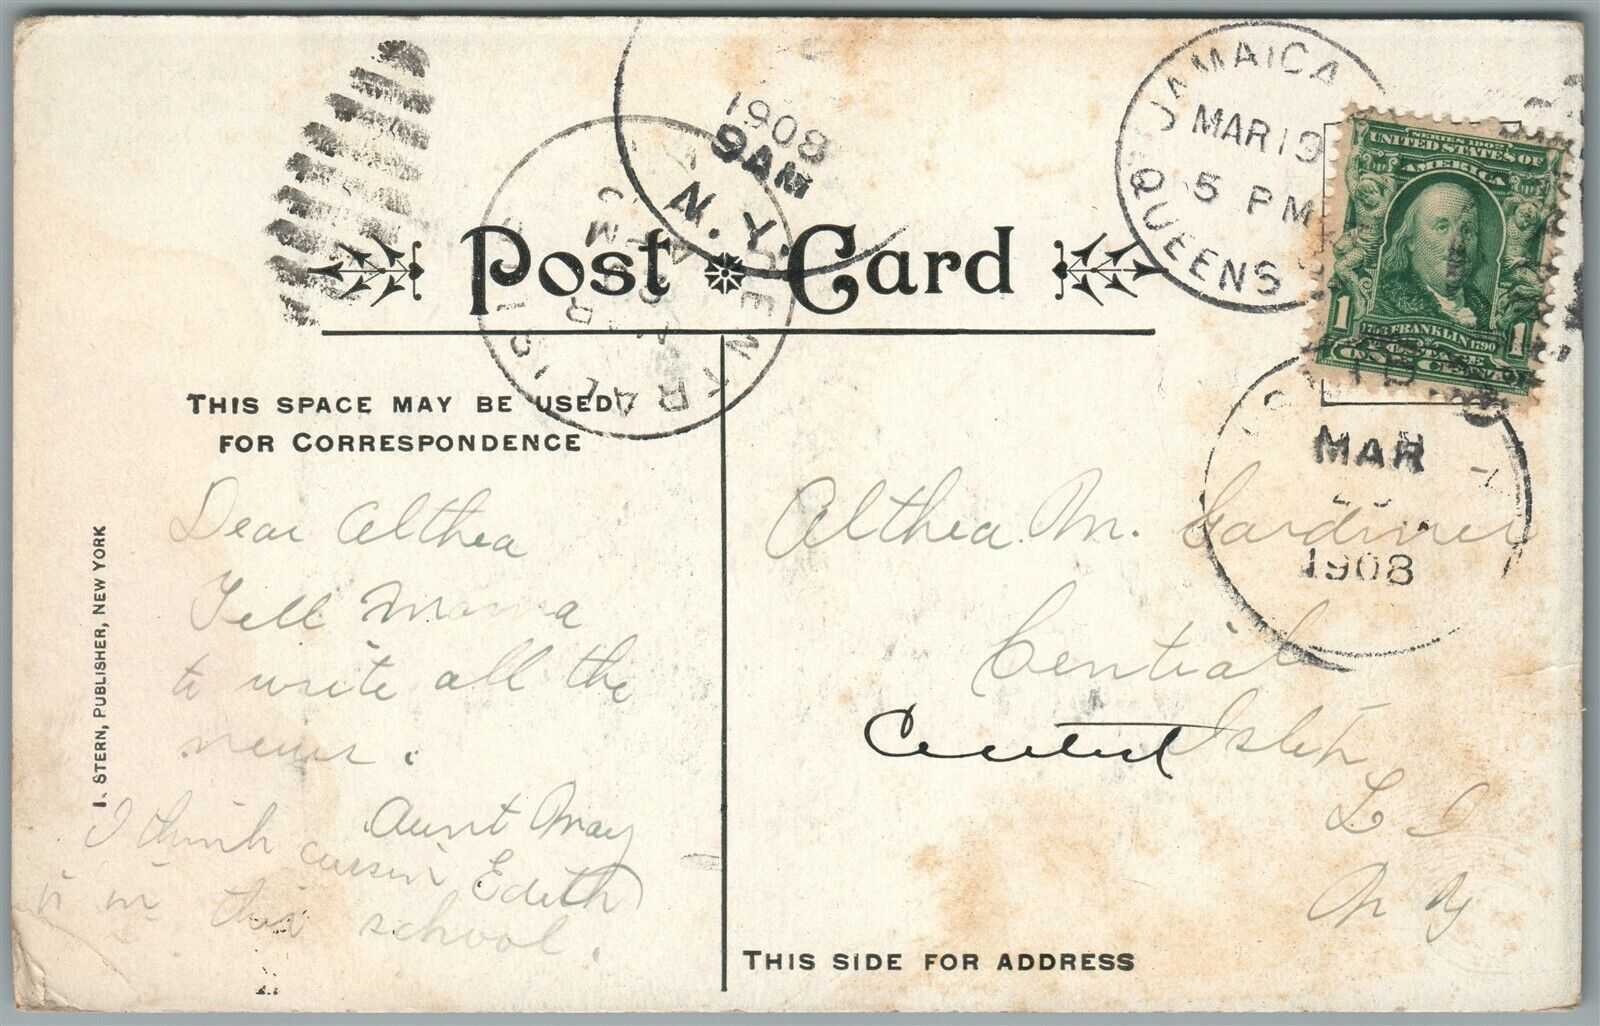 1908
9 AM
N.Y.
JAMAICA
MAR 19
5 PM
QUEENS
SERIES 1902
UNITED STATES OF
AMERICA
1 1
1706 FRANKLIN 1790
POSTAGE
ONE CENT
Post Card
MAR
1908
CENTRAL ISLIP
THIS SPACE MAY BE USED
FOR CORRESPONDENCE
Dear Althea
Tell Mama
to write all the
news.
Aunt May
I think cousin Edith
is in this school.
I. STERN, PUBLISHER, NEW YORK
Althea M. Gardiner
Central
Central Islip
L I
N Y
THIS SIDE FOR ADDRESS